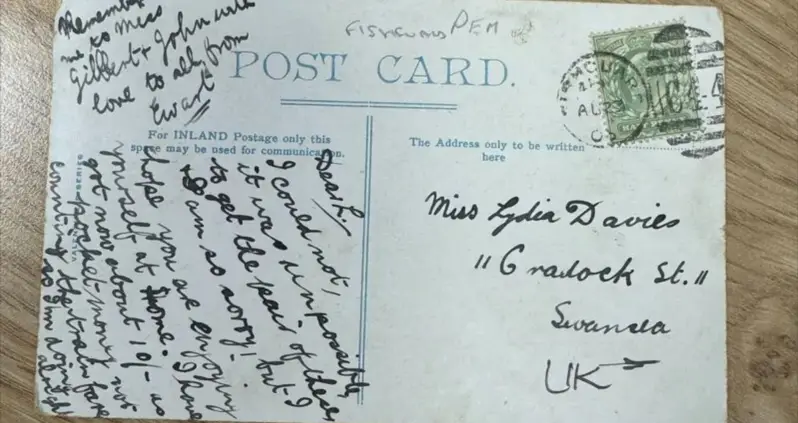 Remember
me to Miss
Gilbert & John with
love to all from
Ewart
POST CARD.
For INLAND Postage only this
space may be used for communication.
The Address only to be written
here
Dear L.
I could not,
it was unpossible,
to get the pair of these
& I am so sorry! but I
hope you are enjoying
yourself at home. I have
got now about 10/- as
pocket money not
counting the train fare
so I'm doing
alright
Miss Lydia Davies
11 Cradock St.
Swansea
UK
PEM
AU 23
SERIES